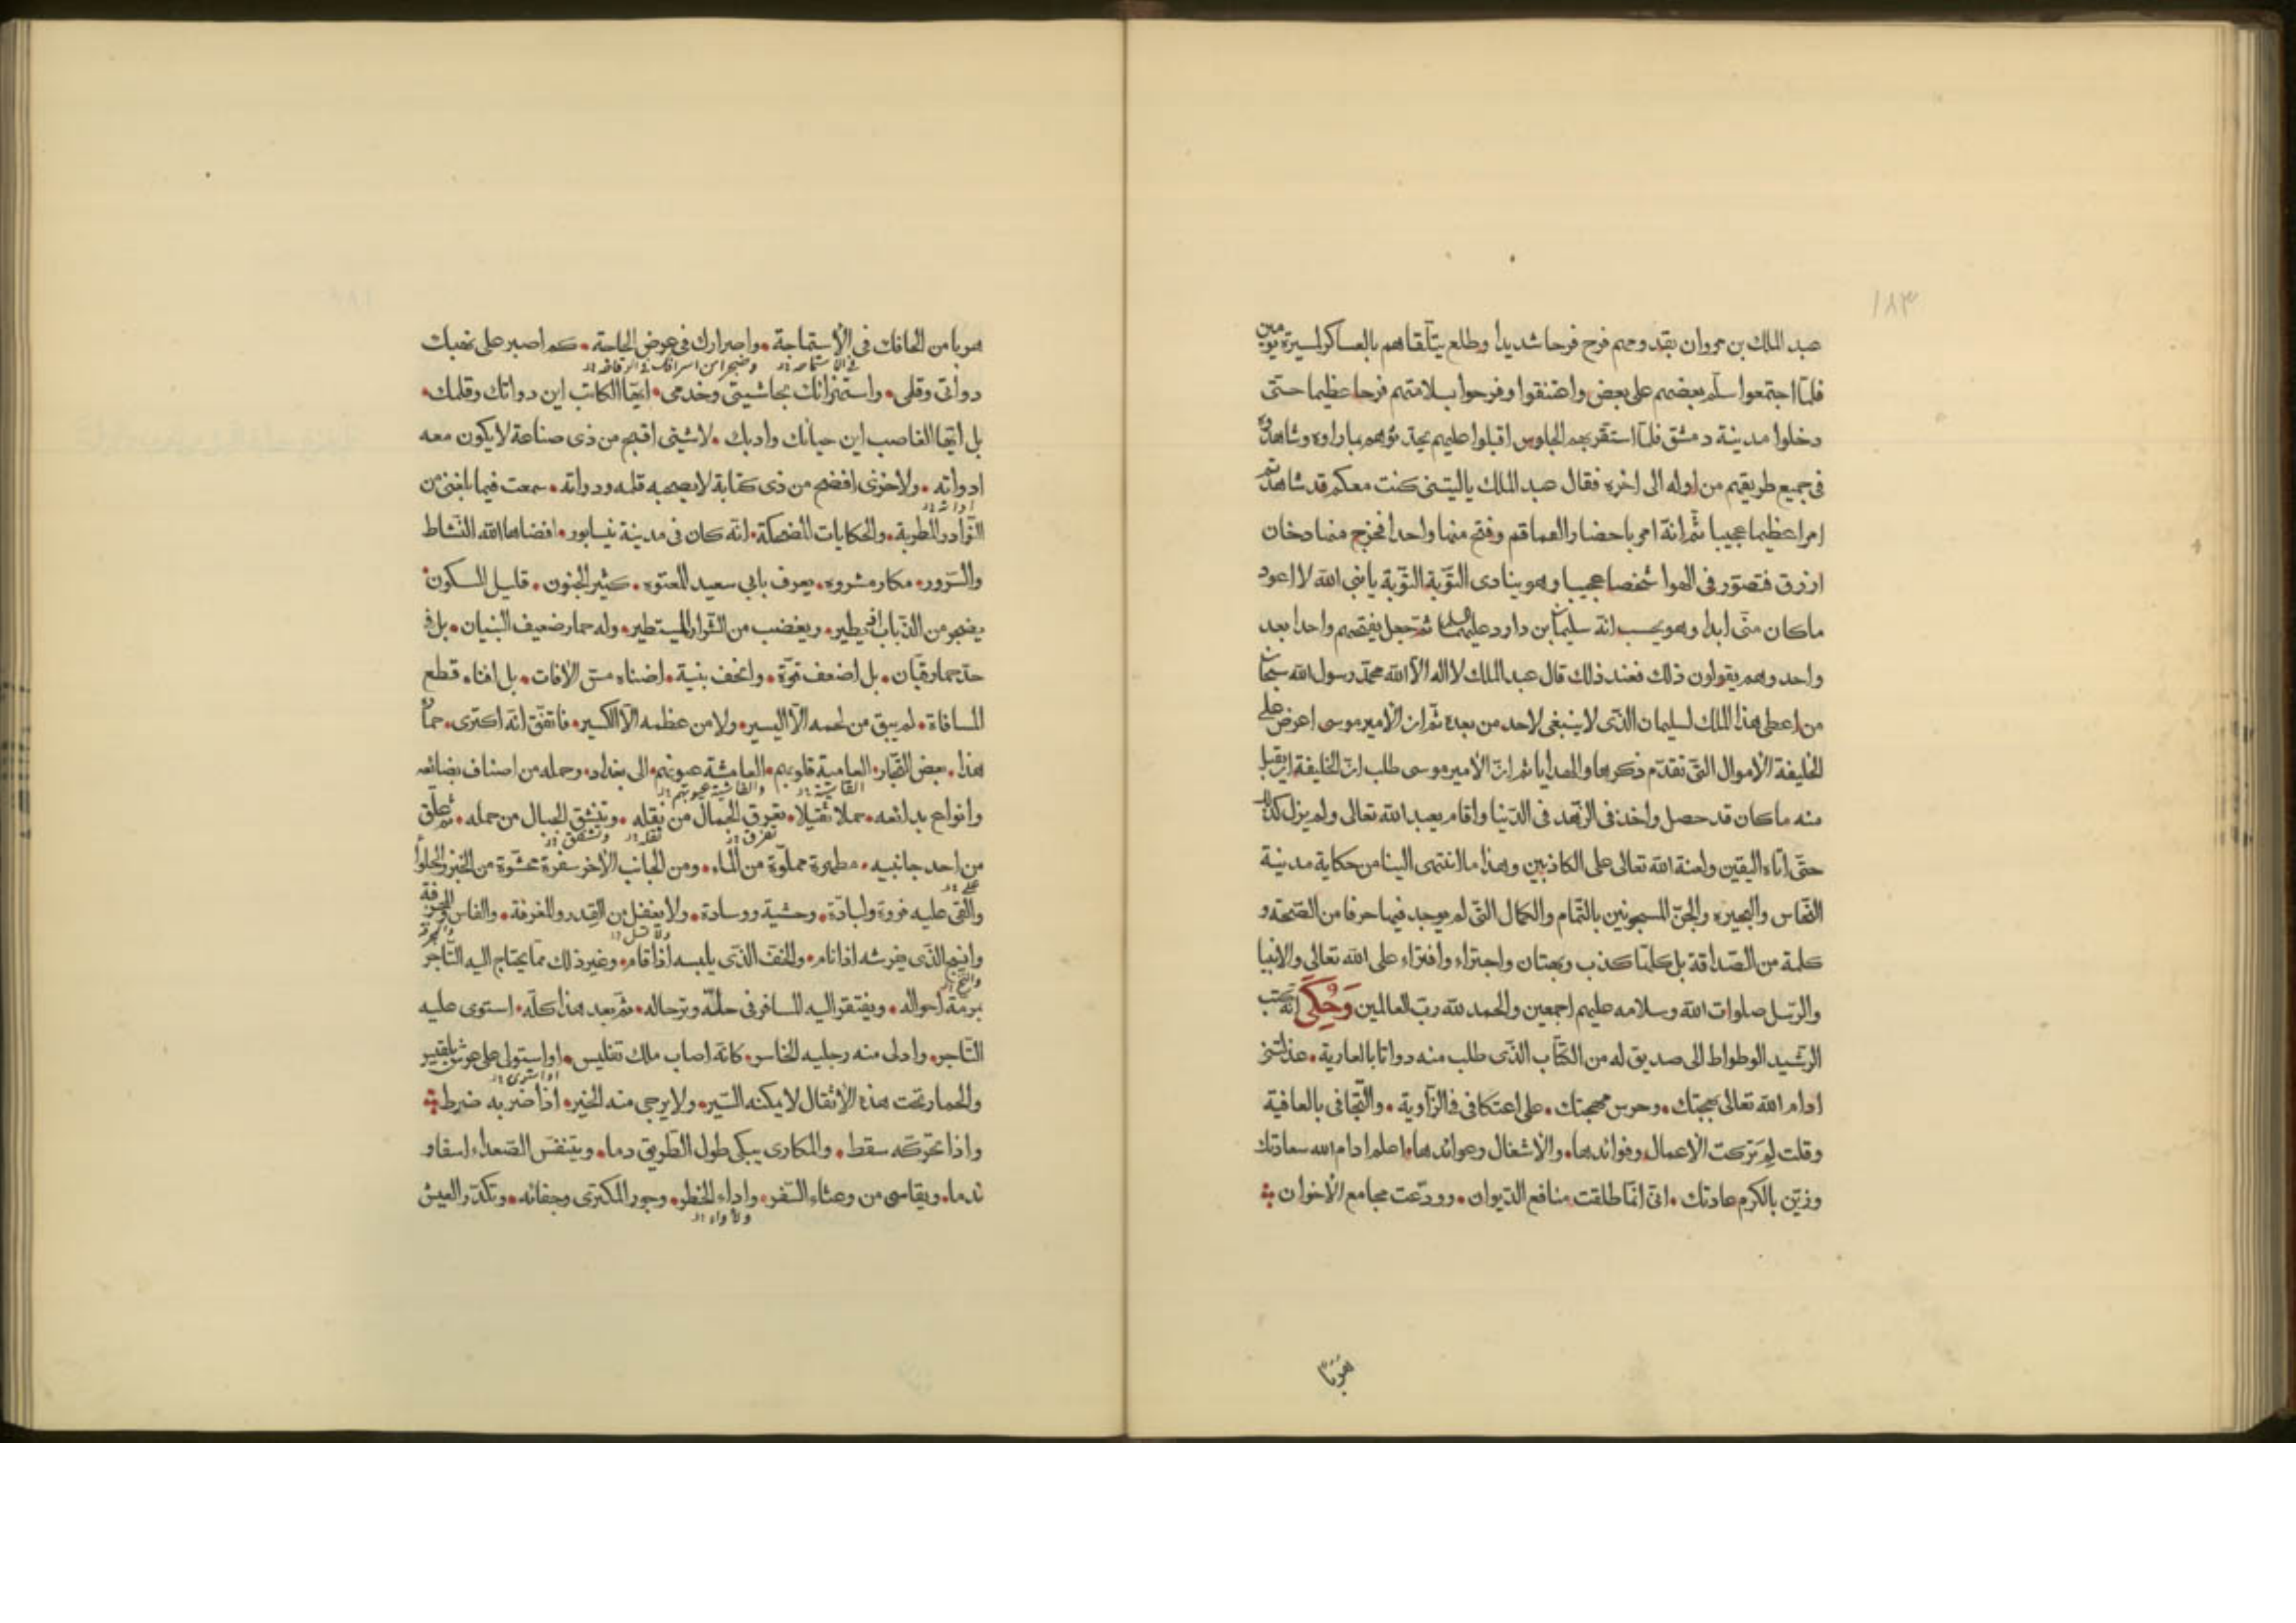 ١٨٣
عبد الملك بن مروان بقدومهم فرح فرحا شديدا وطلع يتلقاهم بالعساكر لمسيرة يومين
فلما اجتمعوا سلم بعضهم على بعض واعتنقوا وفرحوا بسلامتهم فرحا عظيما حتى
دخلوا مدينة دمشق فلما استقر بهم الجلوس اقبلوا عليهم يحدثونهم بما راوه وشاهدوه
فى جميع طريقهم من اوله الى اخره فقال عبد الملك ياليتنى كنت معكم قد شاهدتم
امرا عظيما عجيبا ثم انه امر باحضار القماقم وفتح منها واحدا فخرج منها دخان
ازرق فتصور فى الهوا شخصا عجيبا وهو ينادى التوبة التوبة يا نبى الله لا اعود
ما كان منى ابدا وهو يحسب انه سليمان بن داود عليهما السلام ثم جعل يفتحهم واحدا بعد
واحد وهم يقولون ذلك فعند ذلك قال عبد الملك لا اله الا الله محمد رسول الله سبحان
من اعطى هذا الملك لسليمان الذى لا ينبغى لاحد من بعده ثم ان الامير موسى اعرض على
الخليفة الاموال التى تقدم ذكرها والهدايا ثم ان الامير موسى طلب ان الخليفة ان يقبل
منه ما كان قد حصل واخذ فى الزهد فى الدنيا واقام يعبد الله تعالى ولم يزل كذلك
حتى اتاه اليقين ولعنة الله تعالى على الكاذبين وهذا ما انتهى الينا من حكاية مدينة
النحاس والبحيره والجن المسجونين بالتمام والكمال التى لم يوجد فيها حرفا من الصحة و
كلمة من الصداقة بل كلها كذب وبهتان واجتراء وافتراء على الله تعالى والانبيا
والرسل صلوات الله وسلامه عليهم اجمعين والحمد لله رب العالمين وَحُكِىَ انه كتب
الرشيد الوطواط الى صديق له من الكتاب الذى طلب منه دواتا بالعارية • عذلتنى
ادام الله تعالى بهجتك • وحرس مهجتك • على اعتكافى فى الزاوية • والتجافى بالعافية
وقلت لِمَ تركت الاعمال وفوائدها • والاشغال وعوائدها • اعلم ادام الله سعادتك
وزين بالكرم عادتك • انى انما طلقت منافع الديوان • وودعت مجامع الاخوان
هَرَبًا
هربا من الحافك فى الاستماجة • واصرارك فى عرض الحاجة • كم اصبر على نهبك
فى الاستماحة
دواتى وقلمى • واستهزائك بحاشيتى وخدمى • ايها الكاتب اين دواتك وقلمك •
بل ايها الغاصب اين حيائك وادبك • لا شيئ اقبح من ذى صناعة لا يكون معه
ادواته • ولا خزى افضح من ذى كتابة لا يصحبه قلمه ودواته • سمعت فيما بلغنى من
النوادر المطربة • والحكايات المضحكة • انه كان فى مدينة نيسابور • افضاها الله النشاط
والسرور • مكار مشروه • يعرف بابى سعيد المعتوه • كثير الجنون • قليل السكون •
يضجر من الذباب ان يطير • ويغضب من الغبار المستطير • وله حمار ضعيف البنيان • بل فى
حد حمار قبان • بل اضعف قوة • وانحف بنية • اضناه مس الافات • بل افناه قطع
المسافاة • لم يبق من لحمه الا اليسير • ولا من عظمه الا الكسير • فاتفق انه اكترى • حمار
هذا • بعض التجار • العامية قلوبهم • العامشة عيونهم • الى بغداد • وحمله من اصناف بضائعه
وانواع بدائعه • حملا ثقيلا • تعرق الجمال من ثقله • وتنشق الجبال من حمله • ثم علق
من احد جانبيه • مطهرة مملوة من الماء • ومن الجانب الاخر سفرة محشوة من الخبز والحلوا
والقى عليه فروة ولبادة • وحشية ووسادة • ولا يغفل عن القدر والمغرفة • والفاس والمجرفة
الذى يفرشه اذا نام • والخف الذى يلبسه اذا قام • وغير ذلك مما يحتاج اليه التاجر
برمة احواله • ويفتقر اليه المسافر فى حله وترحاله • ثم بعد هذا كله • استوى عليه
التاجر • وادلى منه رجليه الخاس • كانه اصاب ملك تفليس • او استولى على عرش بلقيس
والحمار تحت هذه الاثقال لا يمكنه السير • ولا يرجى منه الخير • اذا ضربه ضرط
واذا حركه سقط • والمكارى يبكى طول الطريق دما • ويتنفس الصعداء اسفا و
ندما • ويقاسى من وعثاء السفر • واداء الخطر • وجور المكترى وجفائه • وتكدر العيش